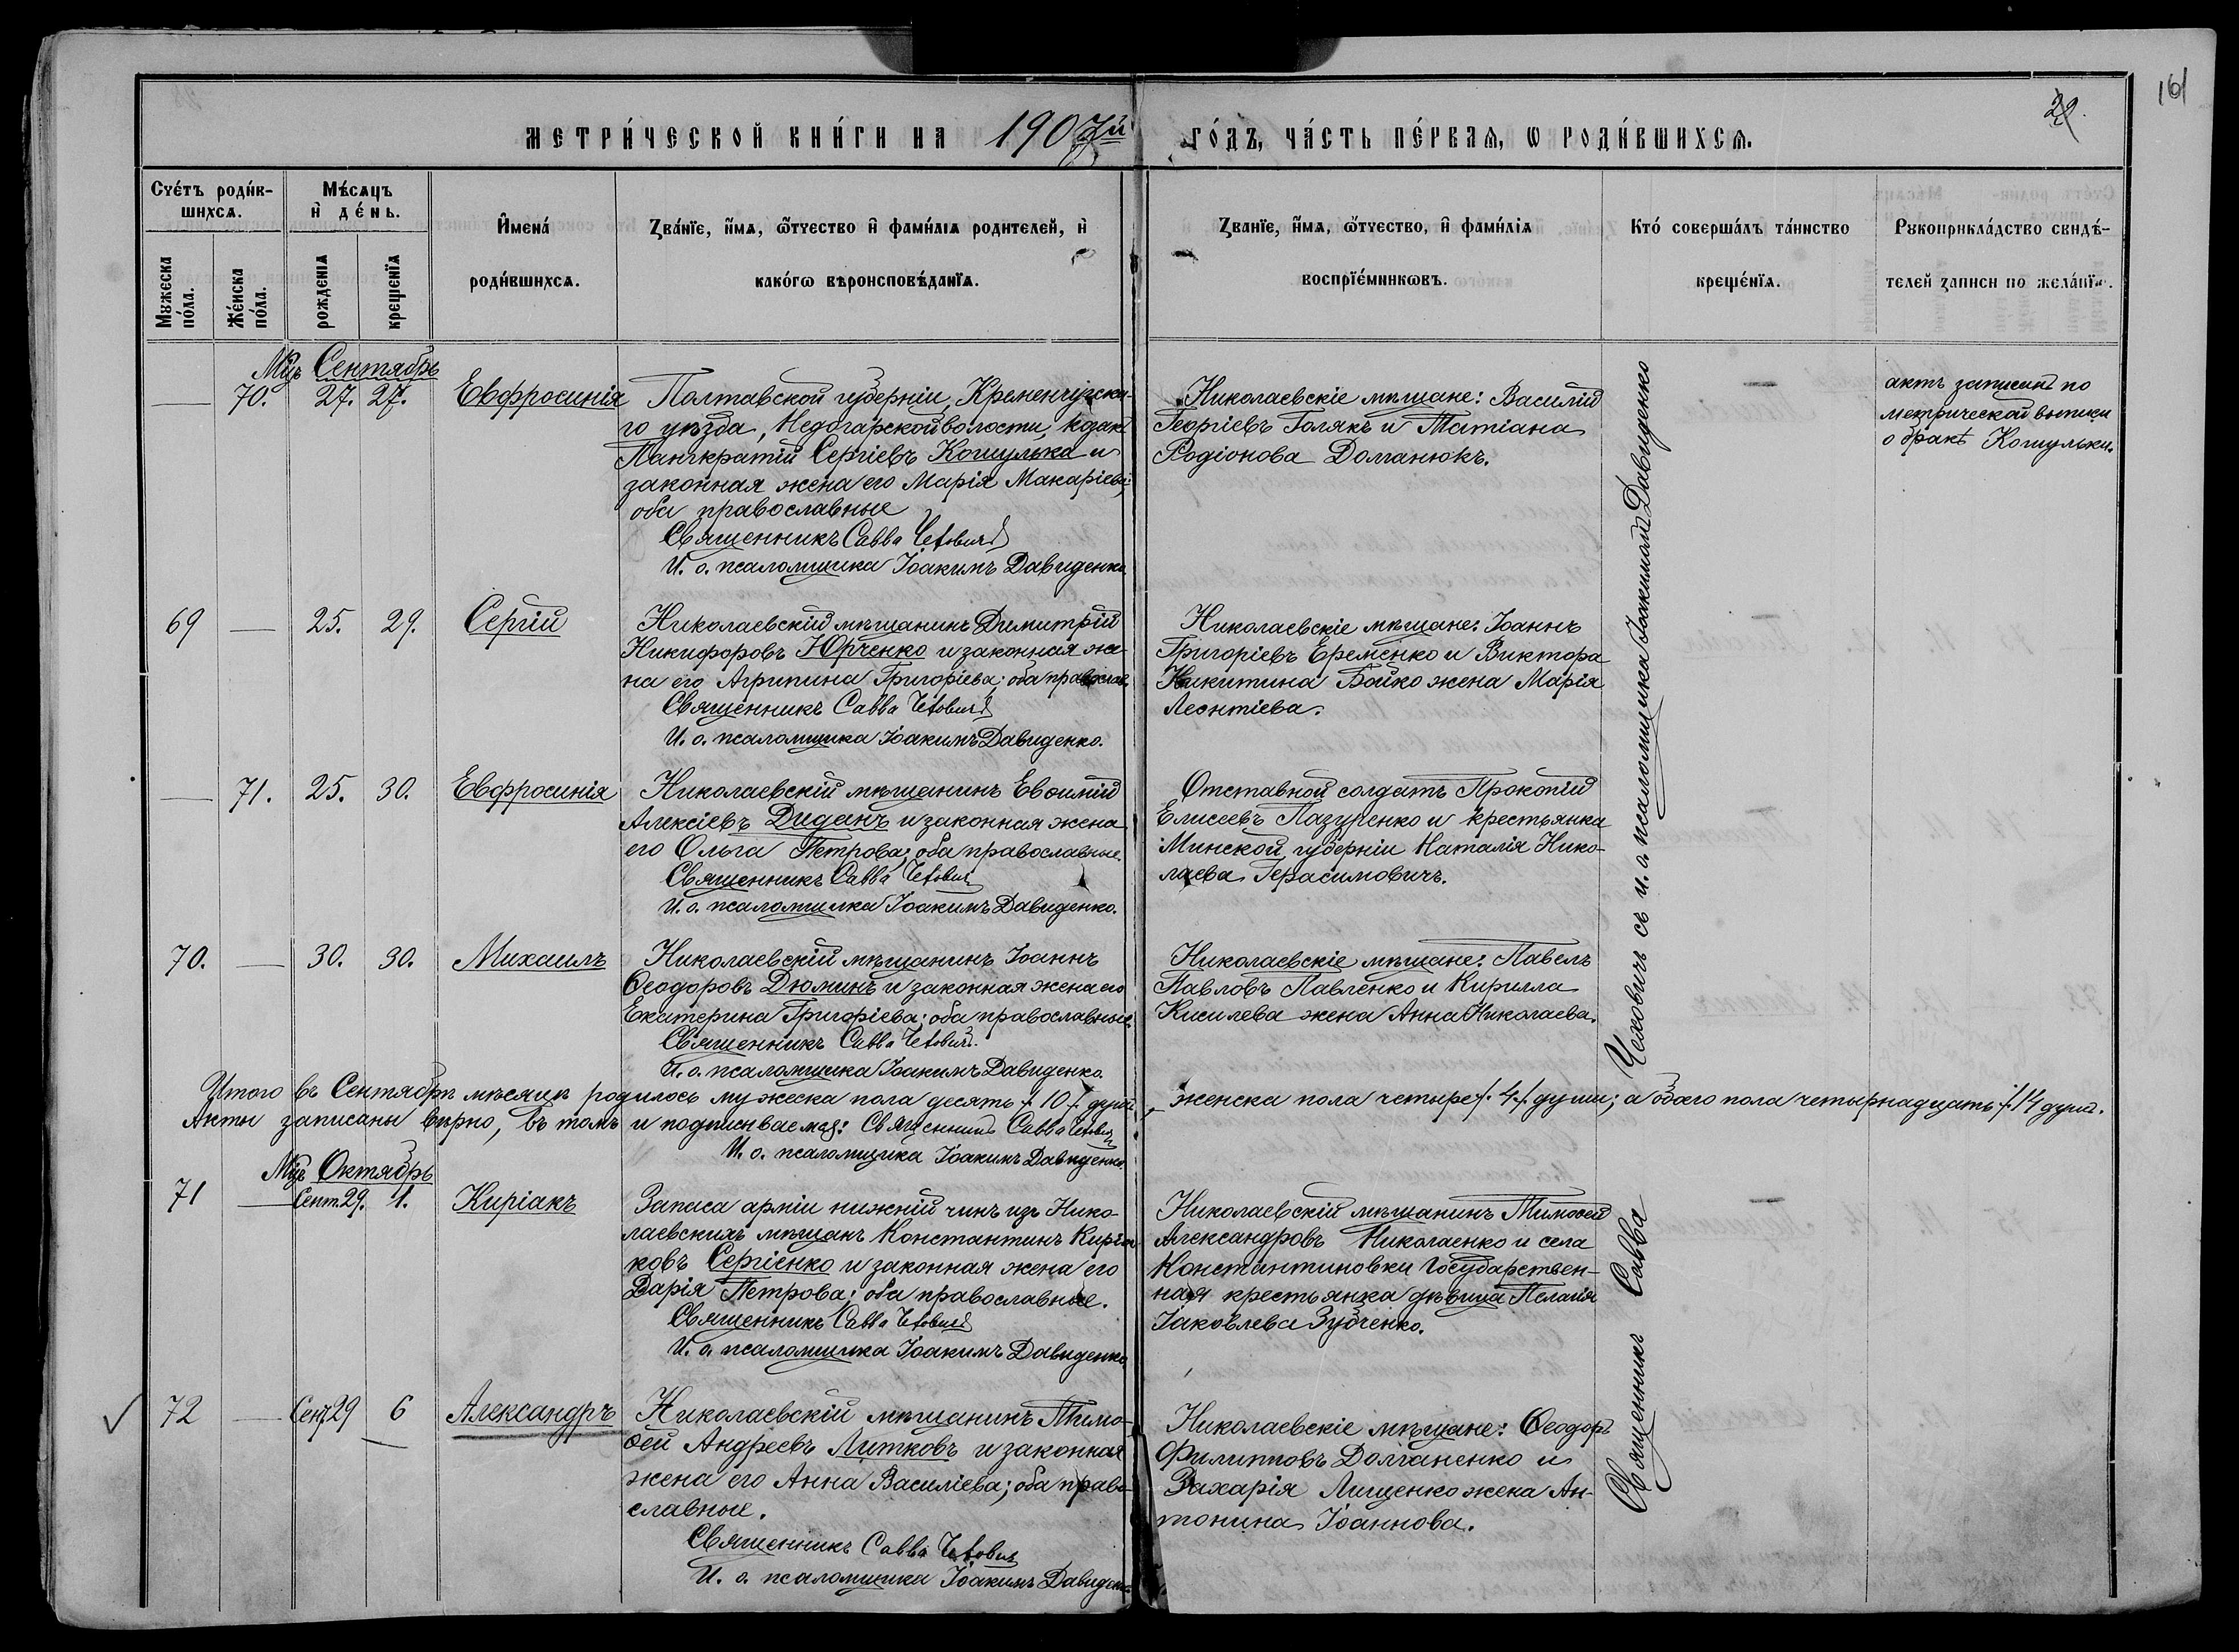 161
29.
МЕТРИ́ЧЕСКОЙ КНИ́ГИ НА 1907й ГО́ДЪ, ЧА́СТЬ ПЕ́РВАѦ, Ѡ РОДИ́ВШИХСѦ.
Счетъ роди́вшихсѧ.
Мѣ́сѧцъ и҆ де́нь.
Мꙋжеска по́ла.
Же́нска по́ла.
рожденїѧ
крещенїѧ
И҆мена́ роди́вшихсѧ.
Зва́нїе, и҆́мѧ, ѻ҆́тчество и҆ фамилїѧ родителей, и҆ како́гѡ вѣроисповѣ́данїѧ.
Званїе, и҆́мѧ, ѻ҆́тчество, и҆ фами́лїѧ воспрїе́мникѡвъ.
Кто́ соверша́лъ та́инство креще́нїѧ.
Рꙋкоприкла́дство свидѣ́телей записи по жела́нїю.
Мцъ Сентябрь
— 70. 27. 27. Евфросинія
Полтавской губерніи, Кременчугска-
го уѣзда, Недогарской волости, козак
Панкратій Сергіевъ Кошулька и
законная жена его Марія Макаріева;
оба православные
Священникъ Савва Чехович
И. о. псаломщика Іоакимъ Давиденко.
Николаевскіе мѣщане: Василій
Георгіевъ Голякъ и Татіана
Родіонова Долганюкъ.
—
актъ записанъ по
метрической выписи
о бракѣ Кошульки.
69 — 25. 29. Сергій
Николаевскій мѣщанинъ Димитрій
Никифоровъ Юрченко и законная же-
на его Агрипина Григоріева; оба православ.
Священникъ Савва Чехович
И. о. псаломщика Іоакимъ Давиденко.
Николаевскіе мѣщане: Іоаннъ
Григоріевъ Еременко и Виктора
Никитина Бойко жена Марія
Леонтіева.
— 71. 25. 30. Евфросинія
Николаевскій мѣщанинъ Евѳимій
Алексіевъ Диданъ и законная жена
его Ольга Петрова; оба православные.
Священникъ Савва Чехович
И. о. псаломщика Іоакимъ Давиденко.
Отставной солдатъ Прокопій
Елисеевъ Лазуренко и крестьянка
Минской губерніи Наталія Нико-
лаева Герасимовичъ.
70. — 30. 30. Михаилъ
Николаевскій мѣщанинъ Іоаннъ
Ѳеодоровъ Дюминъ и законная жена его
Екатерина Григоріева; оба православные.
Священникъ Савва Чехович.
И. о. псаломщика Іоакимъ Давиденко.
Николаевскіе мѣщане: Павелъ
Павловъ Павленко и Кирилла
Киселева жена Анна Николаева.
Итого въ Сентябрѣ мѣсяцѣ родилось мужеска пола десять /.10./ душъ, женска пола четыре /.4./ души; а обоего пола четырнадцать /.14 душ.
Акты записаны вѣрно, въ томъ и подписываемся: Священникъ Савва Чехович
И. о. псаломщика Іоакимъ Давиденко.
Мцъ Октябрь
71 — Сент. 29. 1. Киріакъ
Запаса арміи нижній чинъ изъ Нико-
лаевскихъ мѣщанъ Константинъ Киріа-
ковъ Сергіенко и законная жена его
Дарія Петрова; оба православные.
Священникъ Савва Чехович
И. о. псаломщика Іоакимъ Давиденко.
Николаевскій мѣщанинъ Тимоѳей
Александровъ Николаенко и села
Константиновки Государствен-
ная крестьянка дѣвица Пелагія
Іаковлева Зубченко.
—
72 — Сент. 29 6 Александръ
Николаевскій мѣщанинъ Тимо-
ѳей Андреевъ Литковъ и законная
жена его Анна Василіева; оба право-
славные.
Священникъ Савва Чехович
И. о. псаломщика Іоакимъ Давиденко
Николаевскіе мѣщане: Ѳеодоръ
Филипповъ Долганенко и
Захарія Лищенко жена Ан-
тонина Іоаннова.
Священникъ Савва Чеховичъ съ и. о. псаломщика Іоакимомъ Давиденко